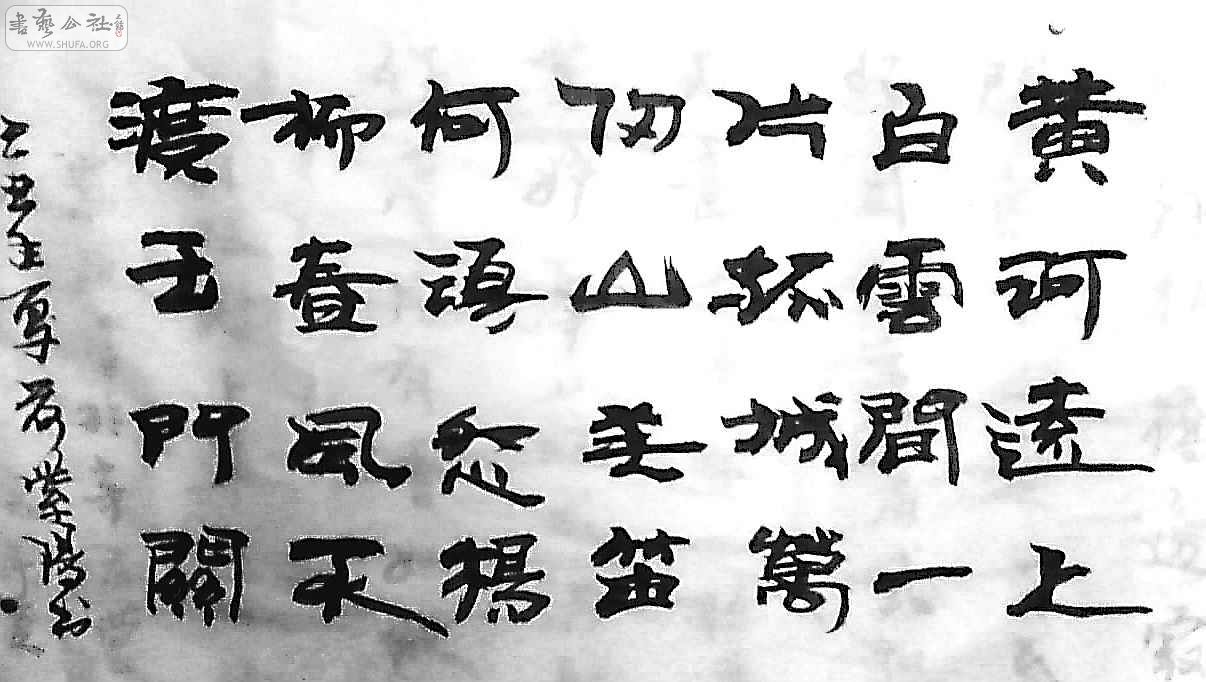 書藝公社
WWW.SHUFA.ORG
黄河遠上
白雲間一
片孤城萬
仞山羌笛
何須怨楊
柳春風不
渡玉門關
己丑年夏紫陽书